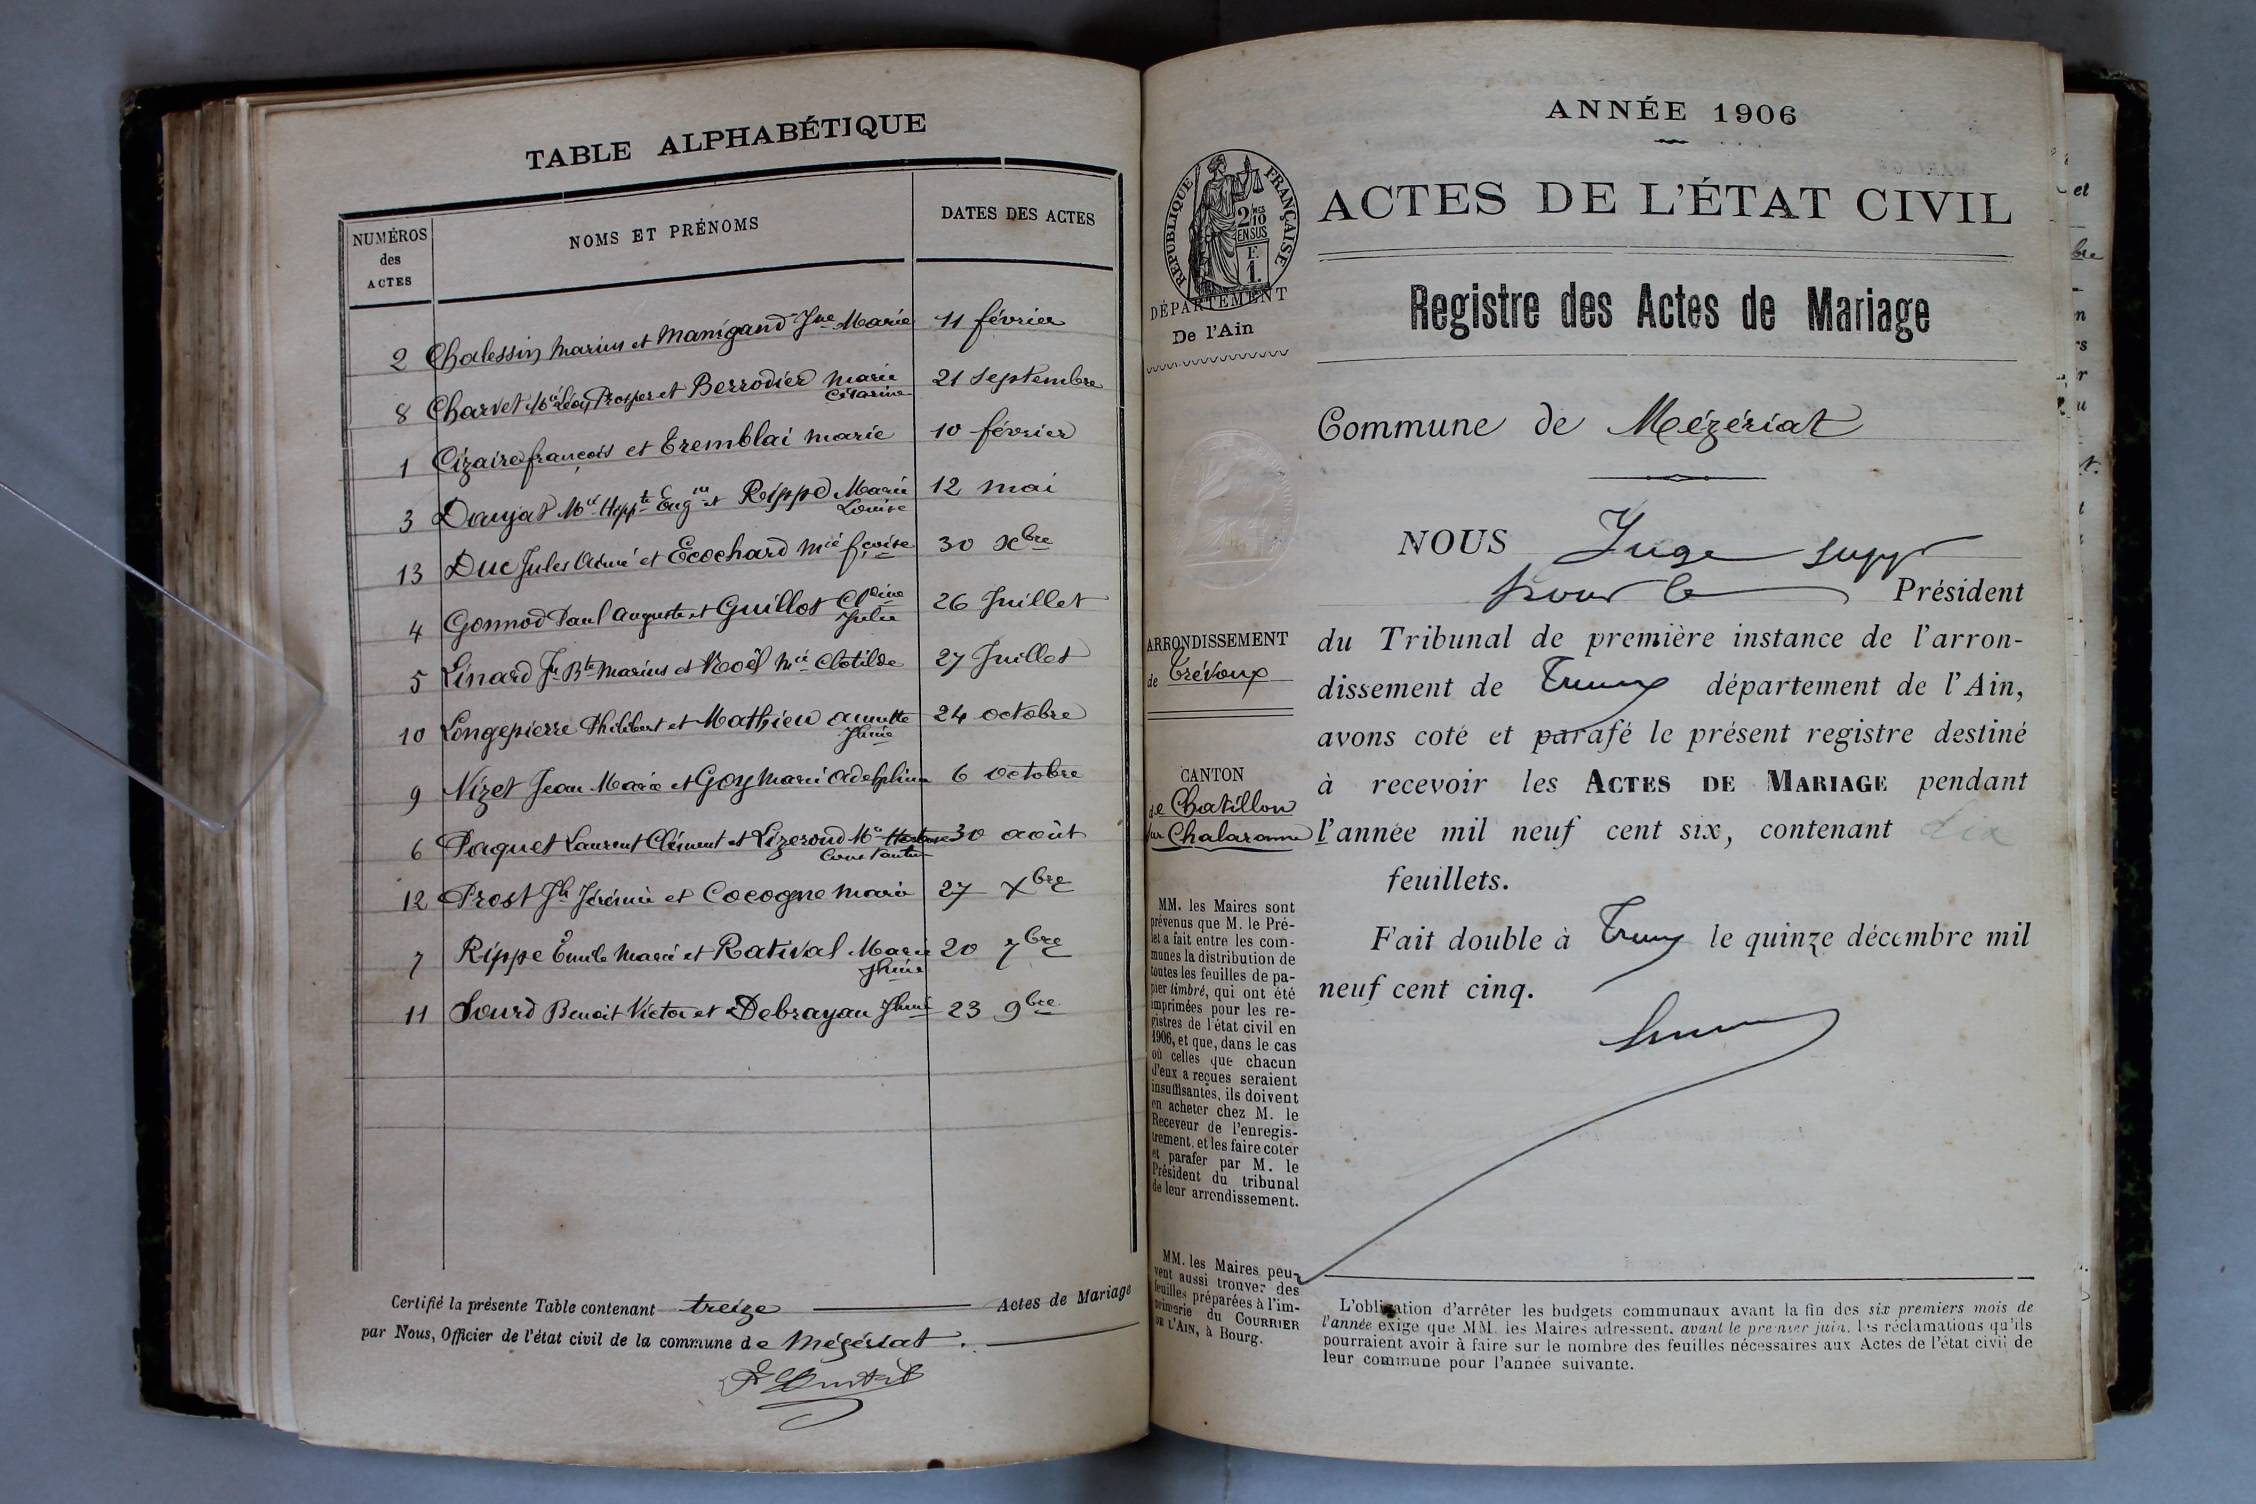 TABLE ALPHABÉTIQUE
NUMÉROS
des
ACTES
NOMS ET PRÉNOMS
DATES DES ACTES
2 Chalessin Marius et Manigand Jne Marie 11 février
8 Charvet Léon Prosper et Berrodier Marie 21 Septembre
Césarine
1 Cizaire françois et Tremblai Marie 10 février
3 Doujat Mce Hyppte Eugne et Rippe Marie 12 mai
Louise
13 Duc Jules Aimé et Ecochard Mie fçoise 30 Xbre
4 Gonnod Paul Auguste et Guillot Cldine 26 Juillet
Julie
5 Linard Jn Bte Marius et Noël Mie Clotilde 27 Juillet
10 Longepierre Philibert et Mathieu annette 24 octobre
Jhine
9 Nizet Jean Marie et Goy Marie Adelphine 6 octobre
6 Paquet Laurent Clément et Lizerond Me 30 août
12 Prost Jh Jérémie et Cocogne Marie 27 Xbre
7 Rippe Émile Marie et Rativat Marie 20 7bre
Jhine
11 Sourd Benoit Victor et Debrayan Jhine 23 9bre
Certifié la présente Table contenant treize Actes de Mariage
par Nous, Officier de l'état civil de la commune de Mézériat.
ANNÉE 1906
RÉPUBLIQUE FRANÇAISE
2/10
EN SUS
F.
1.
DÉPARTEMENT
De l'Ain
ACTES DE L'ÉTAT CIVIL
Registre des Actes de Mariage
Commune de Mézériat
NOUS Juge supp
pour le Président
ARRONDISSEMENT
de Trévoux
du Tribunal de première instance de l'arron-
dissement de Trévoux département de l'Ain,
avons coté et parafé le présent registre destiné
à recevoir les ACTES DE MARIAGE pendant
l'année mil neuf cent six, contenant dix
feuillets.
Fait double à Trévoux le quinze décembre mil
neuf cent cinq.
CANTON
de Chatillon
sur Chalaronne
MM. les Maires sont
prévenus que M. le Pré-
fet a fait entre les com-
munes la distribution de
toutes les feuilles de pa-
pier timbré, qui ont été
imprimées pour les re-
gistres de l'état civil en
1906, et que, dans le cas
où celles que chacun
d'eux a reçues seraient
insuffisantes, ils doivent
en acheter chez M. le
Receveur de l'enregis-
trement, et les faire coter
et parafer par M. le
Président du tribunal
de leur arrondissement.
MM. les Maires peu-
vent aussi trouver des
feuilles préparées à l'im-
primerie du COURRIER
DE L'AIN, à Bourg.
L'obligation d'arrêter les budgets communaux avant la fin des six premiers mois de
l'année exige que MM. les Maires adressent, avant le premier juin, les réclamations qu'ils
pourraient avoir à faire sur le nombre des feuilles nécessaires aux Actes de l'état civil de
leur commune pour l'année suivante.